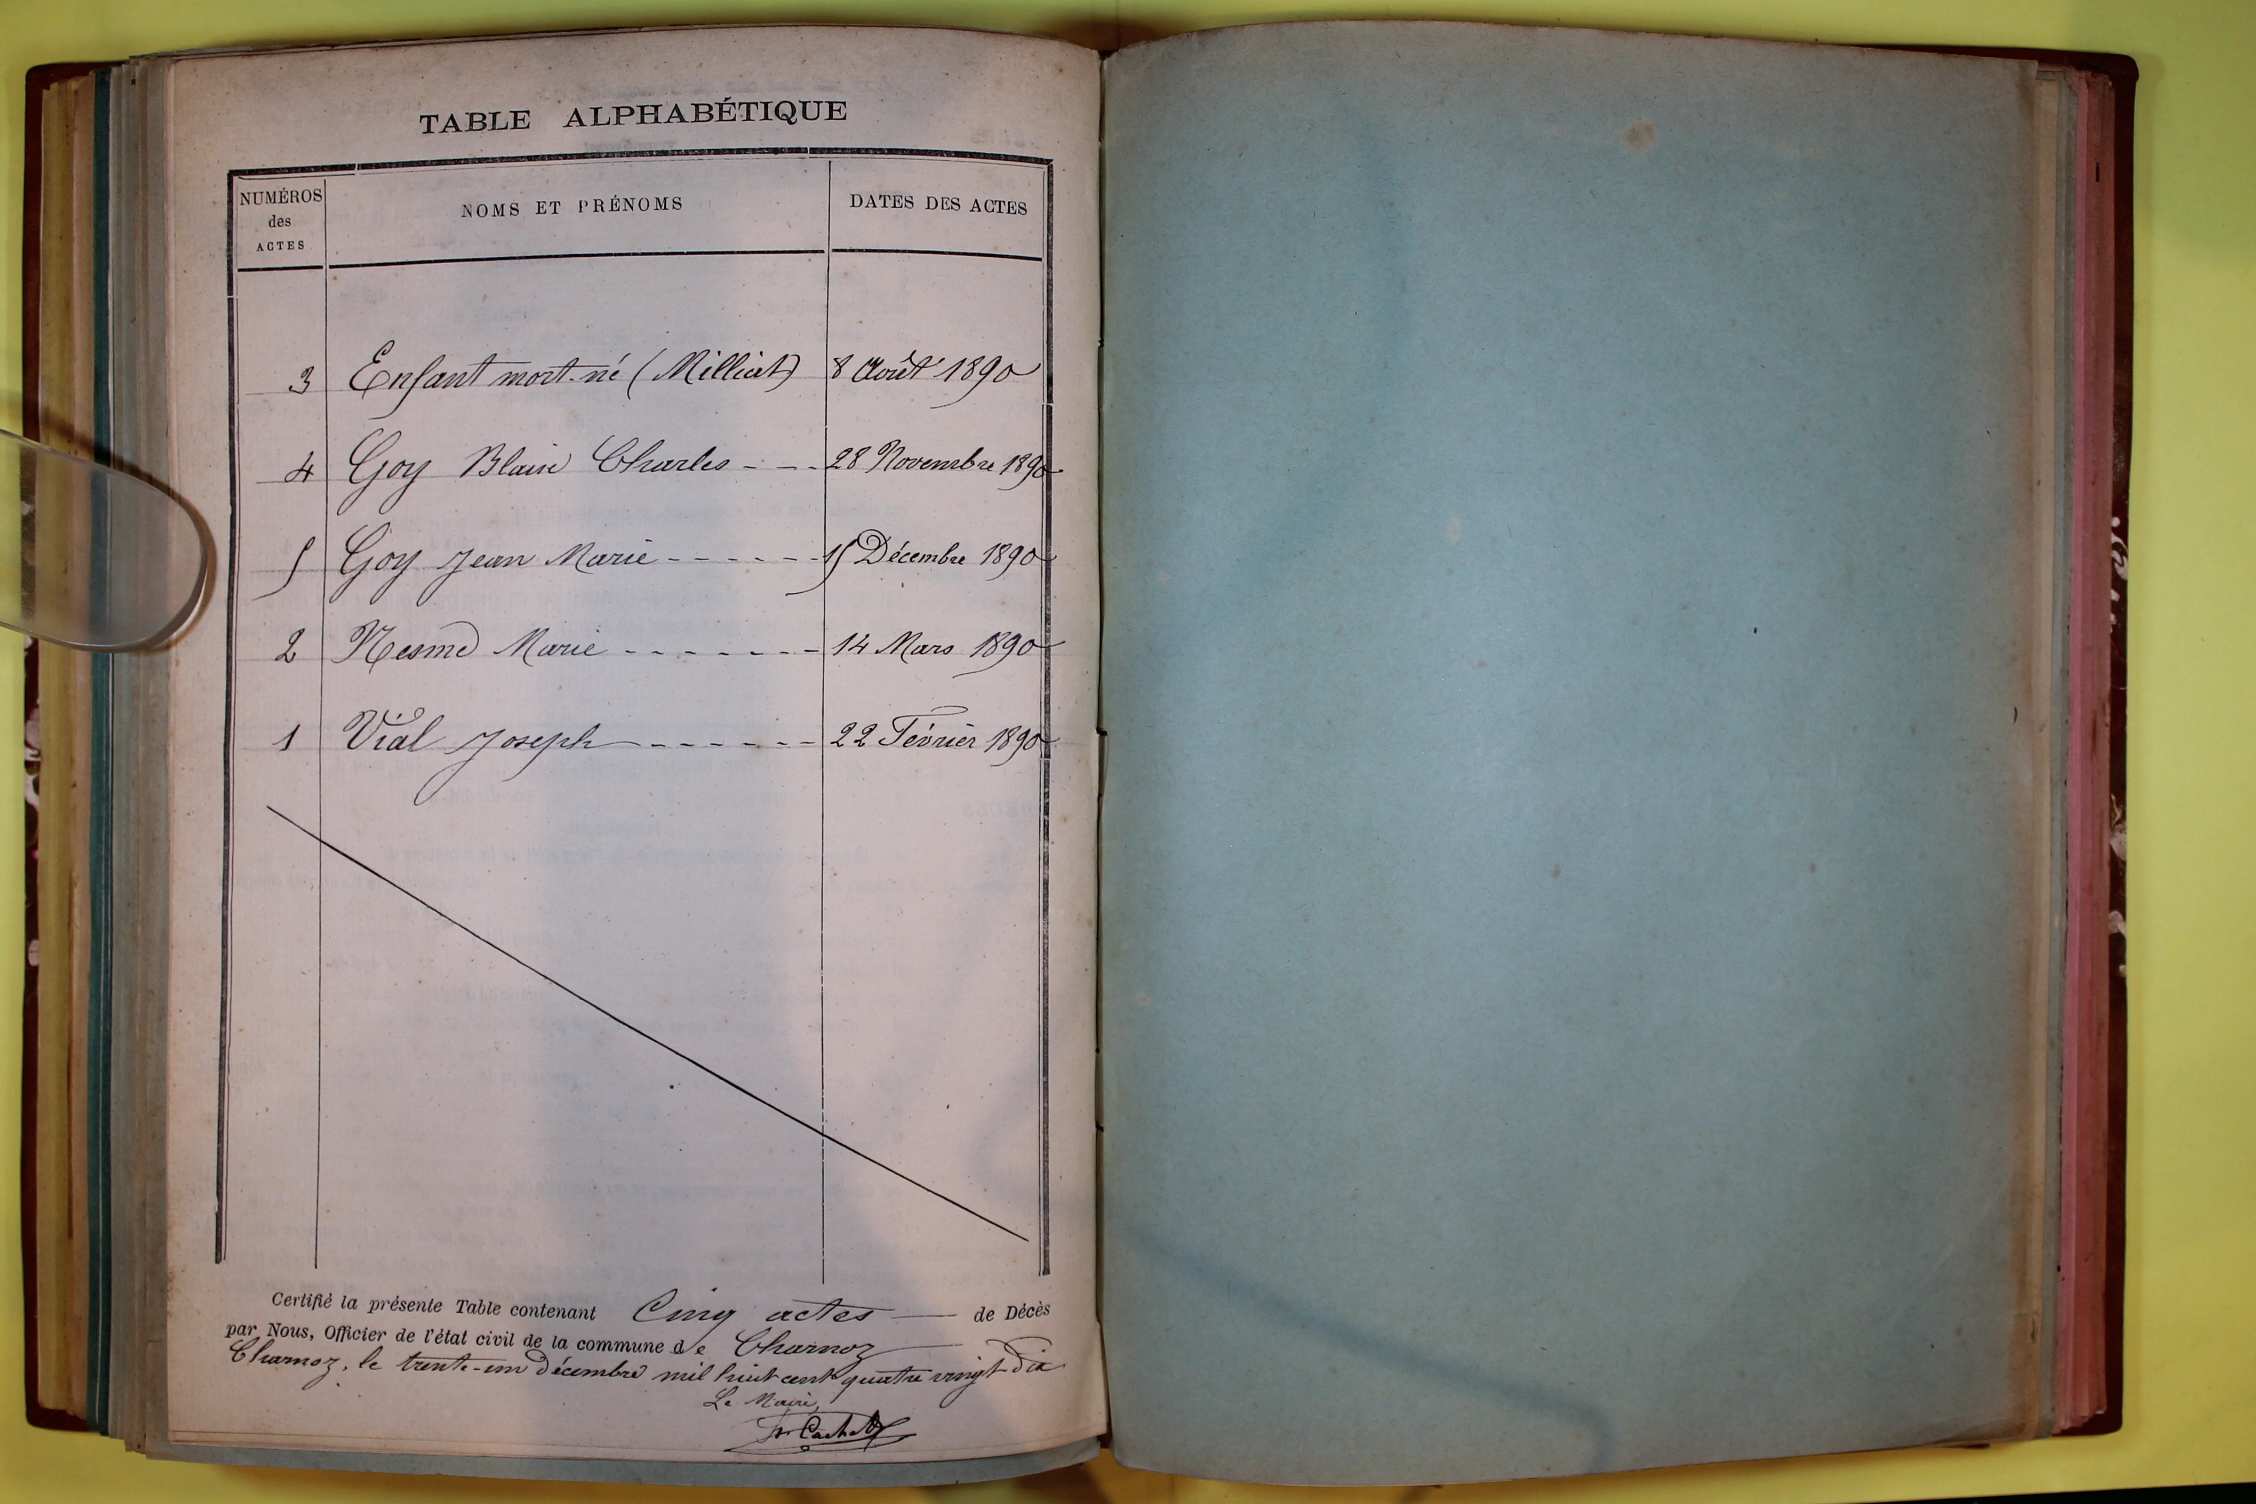 TABLE ALPHABÉTIQUE
NUMÉROS des ACTES NOMS ET PRÉNOMS DATES DES ACTES
3 Enfant mort-né (Milliat) 8 Août 1890
4 Goy Blaise Charles - - - 28 Novembre 1890
5 Goy Jean Marie - - - - - - 15 Décembre 1890
2 Nesme Marie - - - - - - - 14 Mars 1890
1 Vial Joseph - - - - - - 22 Février 1890
Certifié la présente Table contenant Cinq actes — de Décès
par Nous, Officier de l'état civil de la commune de Charnoz
Charnoz, le trente-un Décembre mil huit cent quatre vingt dix
Le Maire,